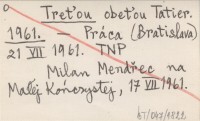 Treťou obeťou Tatier.
1961. — Práca (Bratislava)
21 VII 1961. TNP
Milan Mendřec na
Malej Končystej, 17 VII 1961.